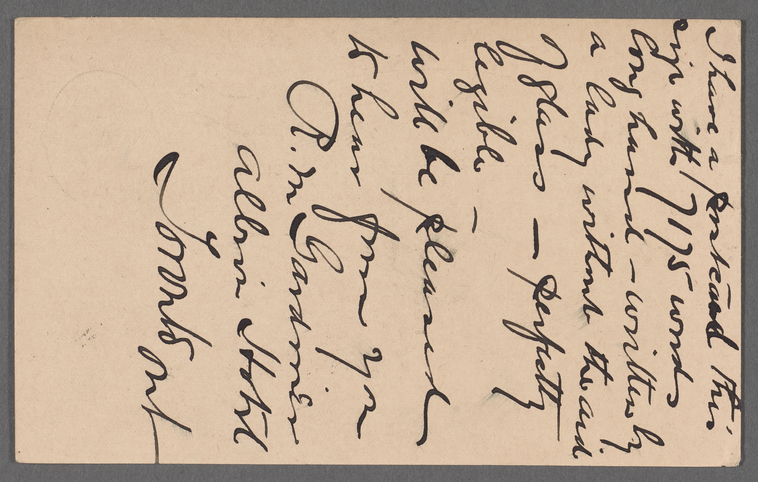 I have a postcard this
size with 7175 words
long hand - written by
a lady without the aid
of glass - perfectly
legible -
will be pleased
to hear from you
R. M Gardiner
Albion Hotel
Toronto Ont